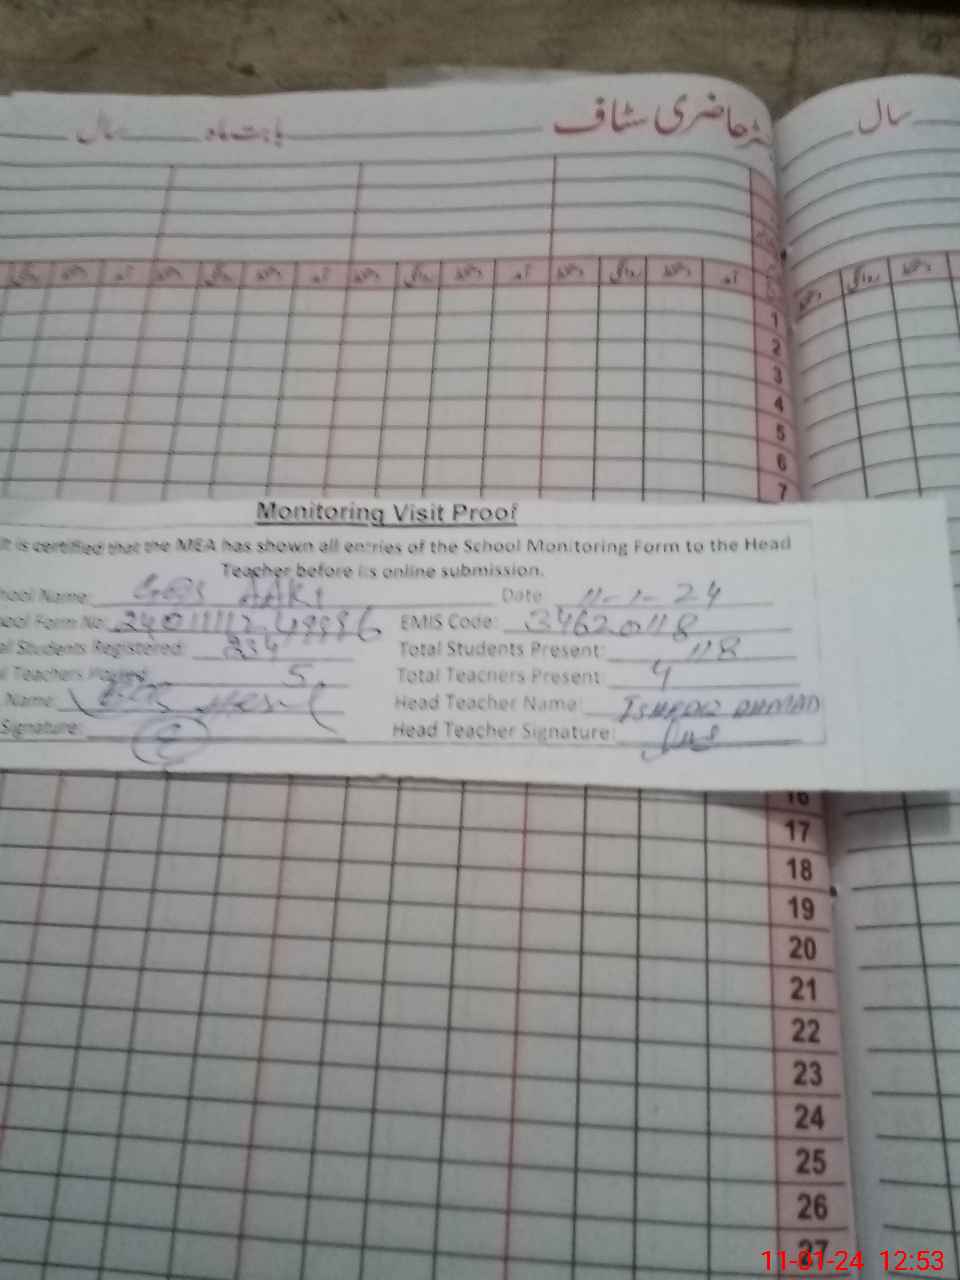 سال
رجسٹر حاضری سٹاف بابت ماہ سال
آمد دستخط روانگی دستخط آمد دستخط روانگی دستخط آمد دستخط روانگی دستخط آمد دستخط روانگی
دستخط روانگی دستخط
1
2
3
4
5
6
7
Monitoring Visit Proof
It is certified that the MEA has shown all entries of the School Monitoring Form to the Head
Teacher before its online submission.
hool Name: Date: 11-1-24
ool Form No: EMIS Code: 34620118
al Students Registered: 234 Total Students Present: 118
l Teachers Posted: 5 Total Teachers Present: 4
Name: Head Teacher Name: AHMAD
Signature: Head Teacher Signature:
16
17
18
19
20
21
22
23
24
25
26
27
11-01-24 12:53